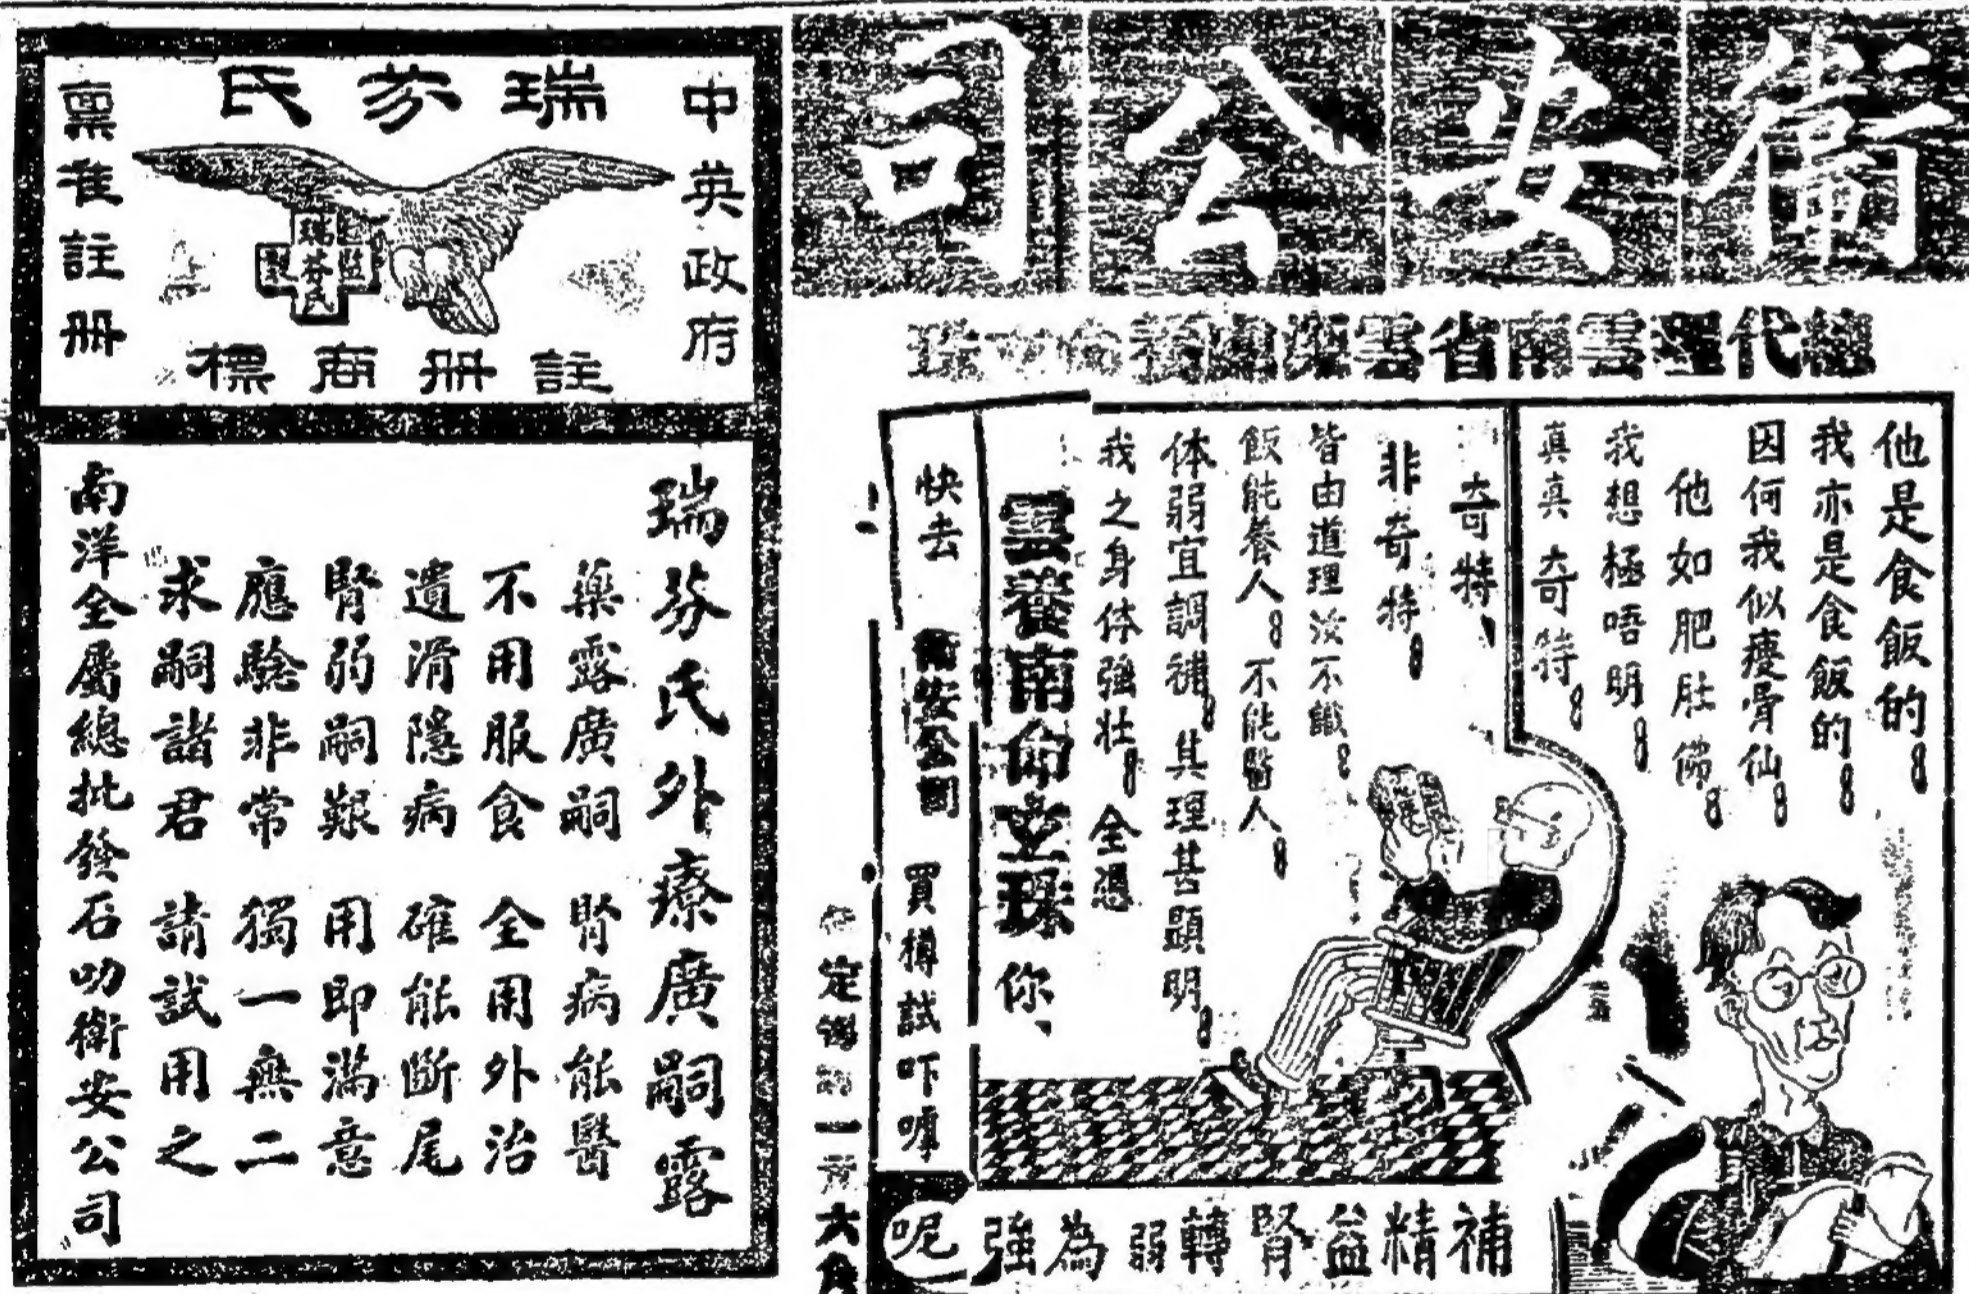 衞安公司
總代理雲南省雲
他是食飯的。
我亦是食飯的。
因何我似瘦骨仙。
他如肥肚佛。
我想極唔明。
真真奇特。
奇特、
非奇特。
皆由道理汝不識。
飯能養人。不能醫人。
体弱宜調補。其理甚顕明。
我之身体強壮。全憑
你、
快去
衛安公司
買樽試吓嘑
呢
補精益腎轉弱為強
定價
一 六
中英政府
瑞芬氏
瑞芬氏
監製
註册商標
禀准註册
瑞芬氏外療廣嗣露
藥露廣嗣 腎病能醫
不用服食 全用外治
遺滑隱病 確能斷尾
腎弱嗣艱 用即滿意
應驗非常 獨一無二
求嗣諸君 請試用之
南洋全屬總批發石叻衛安公司